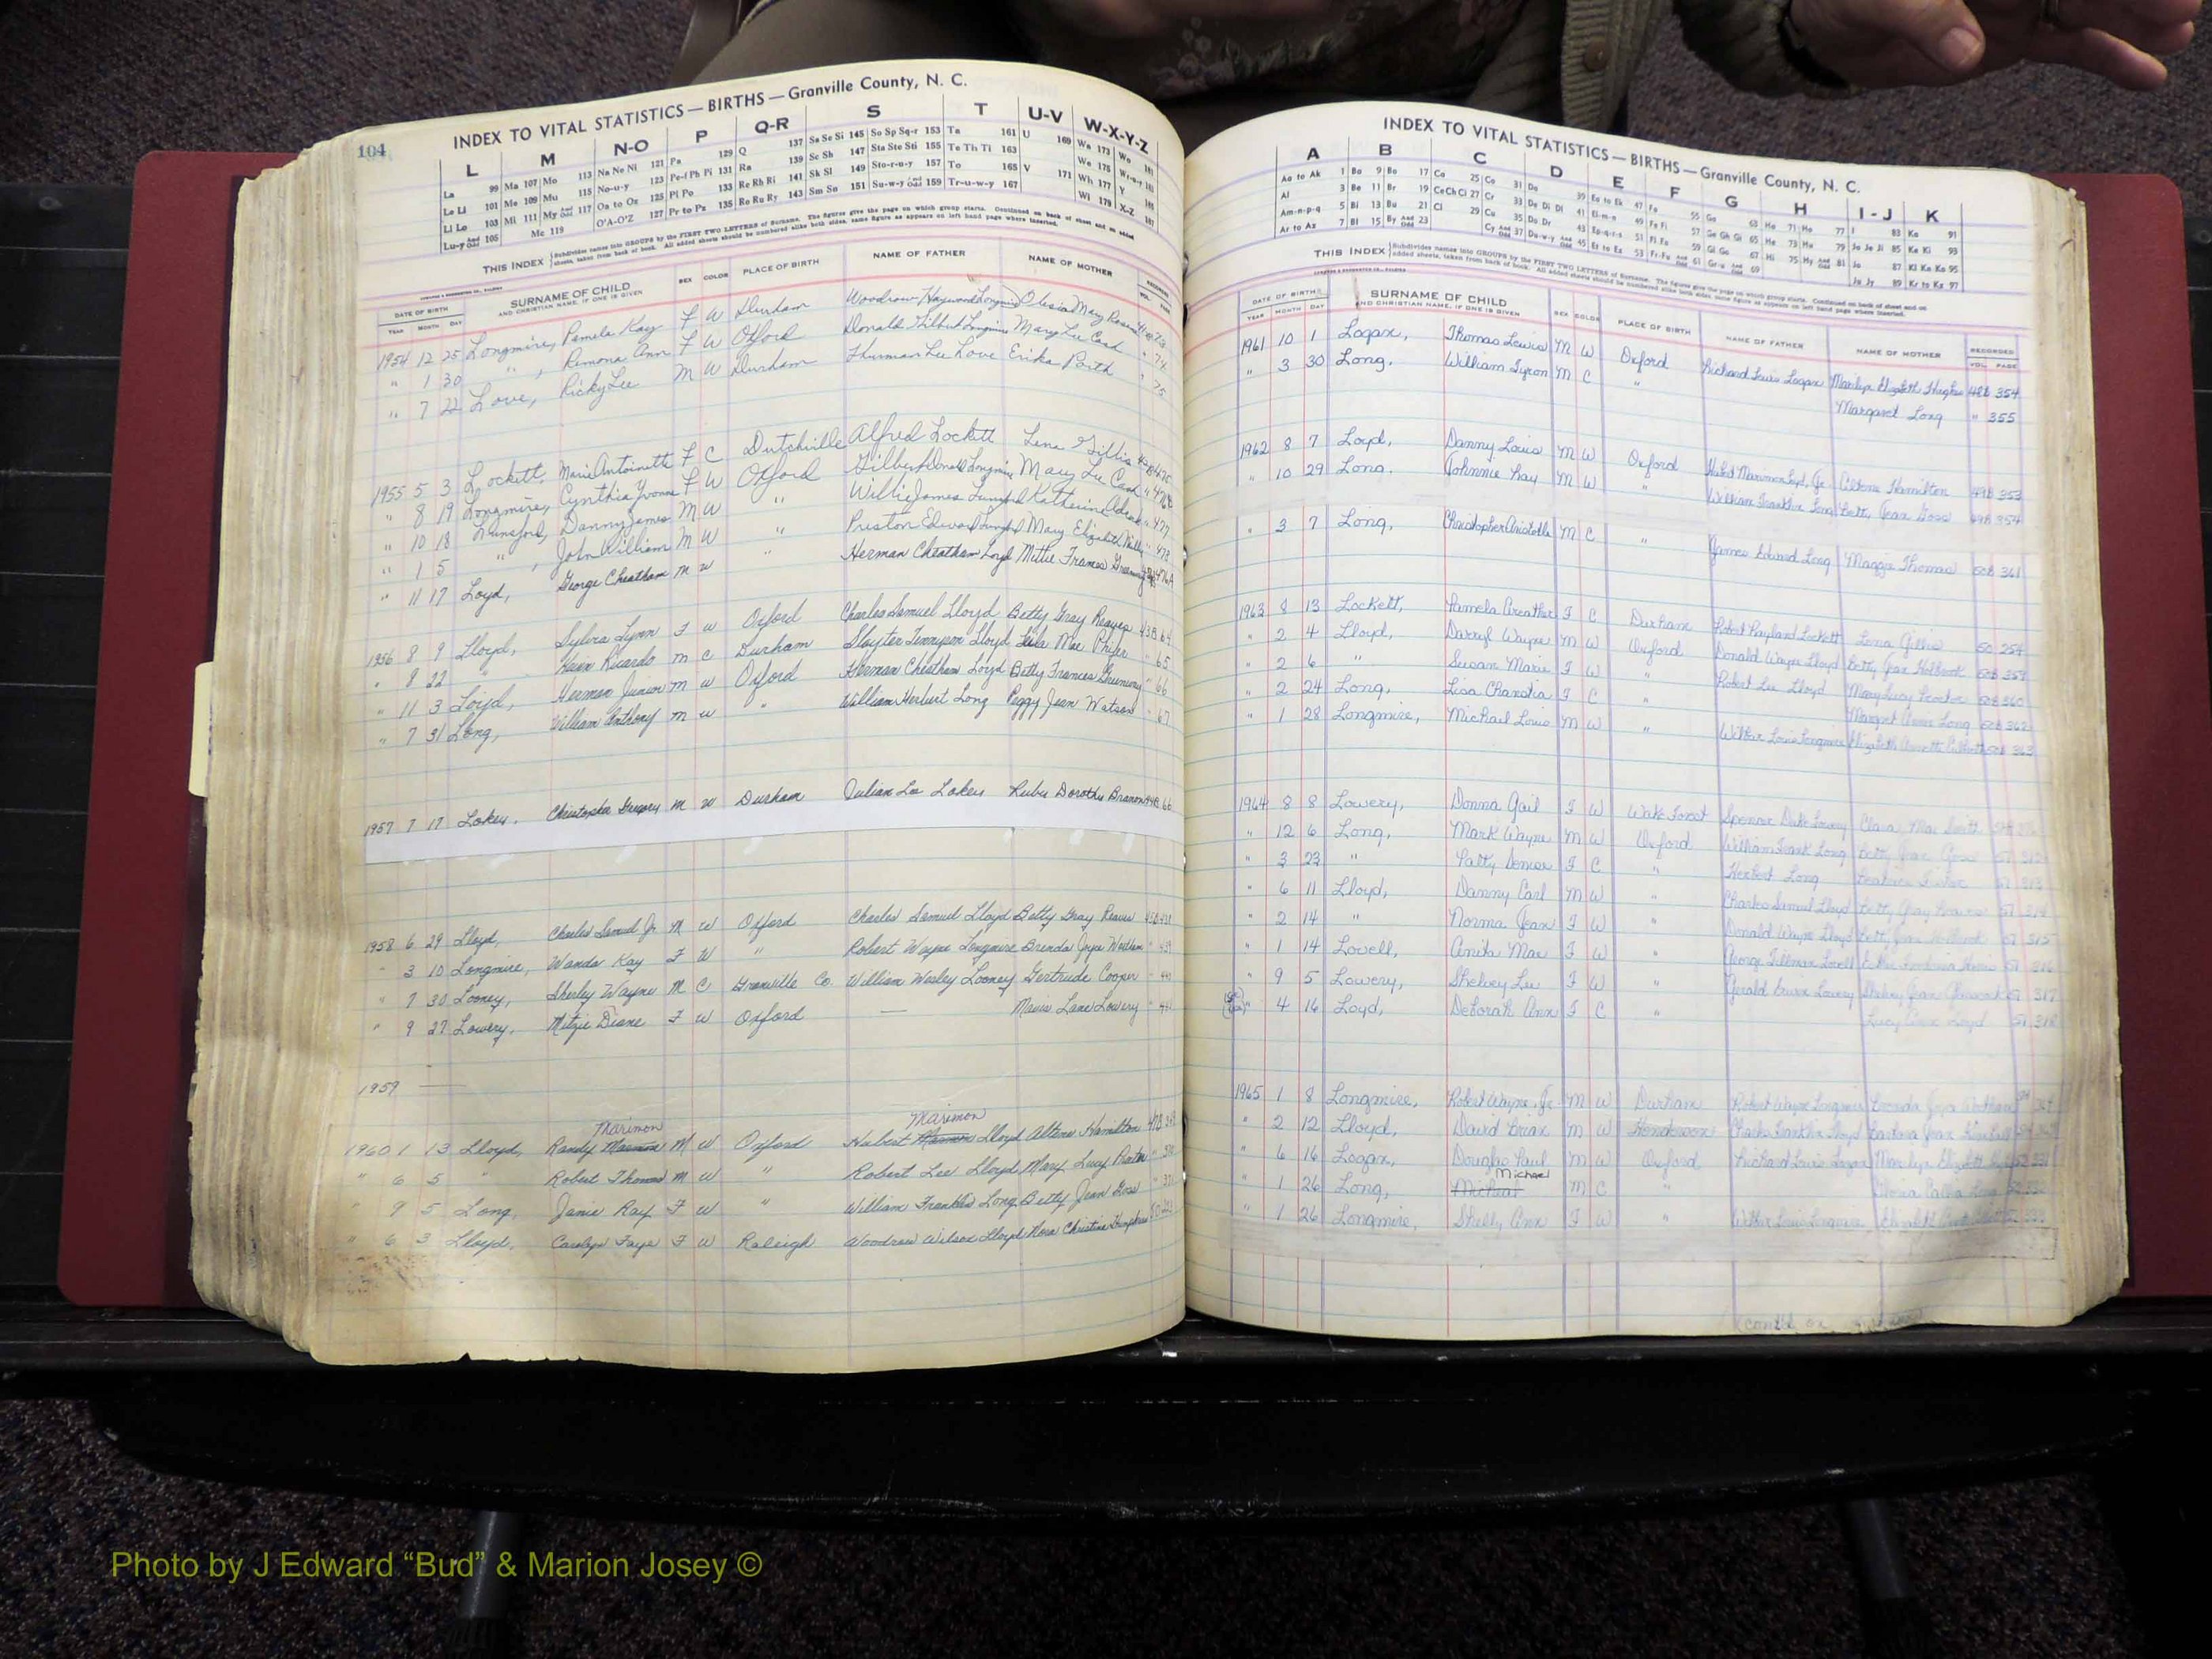 104
INDEX TO VITAL STATISTICS — BIRTHS — Granville County, N. C.
L M N-O P Q-R S T U-V W-X-Y-Z
La 99 Ma 107 Mo 113 Na Ne Ni 121 Pa 129 Q 137 Sa Se Si 145 So Sp Sq-r 153 Ta 161 U 169 Wa 173 Wo 181
Le Li 101 Me 109 Mu 115 No-u-y 123 Pe-f Ph Pi 131 Ra 139 Sc Sh 147 Sta Ste Sti 155 Te Th Ti 163 We 175
Ll Lo 103 Mi 111 My And Odd 117 Oa to Oz 125 Pl Po 133 Re Rh Ri 141 Sk Sl 149 Sto-r-u-y 157 To 165 V 171 Wh 177 Y
Lu-y And Odd 105 Mc 119 O'A-O'Z 127 Pr to Pz 135 Ro Ru Ry 143 Sm Sn 151 Su-w-y And Odd 159 Tr-u-w-y 167 Wi 179 X-Z
THIS INDEX Subdivides names into GROUPS by the FIRST TWO LETTERS of Surname. The figures give the page on which group starts. Continued on back of sheet and on added
sheets, taken from back of book. All added sheets should be numbered alike both sides, same figure as appears on left hand page where inserted.
DATE OF BIRTH SURNAME OF CHILD SEX COLOR PLACE OF BIRTH NAME OF FATHER NAME OF MOTHER RECORDED
YEAR MONTH DAY AND CHRISTIAN NAME, IF ONE IS GIVEN VOL. PAGE
1954 12 25 Longmire, Pamela Kay F W Durham Woodrow Haywood Longmire Mary
" 1 30 " , Ramona Ann F W Oxford Donald Gilbert Longmire Mary Lu Cash " 74
" 7 22 Love, Ricky Lee M W Durham Thurman Lee Love Erika Parth " 75
1955 5 3 Lockett, Marie Antoinette F C Dutchville Alfred Lockett Lena Gillis
" 8 19 Longmire, Cynthia Yvonne F W Oxford Gilbert Donald Longmire Mary Lu Cash
" 10 18 Lunsford, Danny James M W " Willie James Lunsford Katherine " 477
" 1 5 " , John William M W " Preston Edward Lunsford Mary Elizabeth " 478
" 11 17 Loyd, George Cheatham M W Herman Cheatham Loyd Mittie Frances
1956 8 9 Lloyd, Sylvia Lynn F W Oxford Charles Samuel Lloyd Betty Gray Reaves 43B 64
" 8 22 " Ricardo M C Durham Slayter Tennyson Lloyd Mae " 65
" 11 3 Loyd, Herman Junior M W Oxford Herman Cheatham Loyd Betty Frances " 66
" 7 31 Long, William Anthony M W " William Herbert Long Peggy Jean Watson " 67
1957 7 17 Lokey, Christopher Gregory M W Durham Julian Lee Lokey Ruby Dorothy
1958 6 29 Lloyd, Charles Samuel Jr. M W Oxford Charles Samuel Lloyd Betty Gray Reaves
" 3 10 Longmire, Wanda Kay F W " Robert Wayne Longmire Brenda Joyce " 439
" 7 30 Looney, Sherley Wayne M C Granville Co. William Wesley Looney Gertrude Cooper " 440
" 9 27 Lowery, Mitzie Diane F W Oxford — Mavis Lane Lowery " 441
1959 —
Marimon Marimon
1960 1 13 Lloyd, Randy M W Oxford Hubert Lloyd Altene Hamilton 47B
" 6 5 " Robert Thomas M W " Robert Lee Lloyd Mary Lucy
" 9 5 Long, Janie Kay F W " William Franklin Long Betty Jean Goss
" 6 3 Lloyd, Carolyn Faye F W Raleigh Woodrow Wilson Lloyd Rose Christine Humphries
INDEX TO VITAL STATISTICS — BIRTHS — Granville County, N. C.
A B C D E F G H I-J K
Aa to Ak 1 Ba 9 Bo 17 Ca 25 Co 31 Da 39 Ea to Ek 47 Fa 55 Ga 63 Ha 71 Ho 77 I 83 Ka 91
Al 3 Be 11 Br 19 Ce Ch Ci 27 Cr 33 De Di Dl 41 El-m-n 49 Fe Fi 57 Ge Gh Gi 65 He 73 Hu 79 Ja Je Ji 85 Ke Ki 93
Am-n-p-q 5 Bi 13 Bu 21 Cl 29 Cu 35 Do Dr 43 Eo-q-r-s 51 Fl Fo 59 Gl Go 67 Hi 75 Hy And Odd 81 Jo 87 Kl Kn Ko 95
Ar to Az 7 Bl 15 By And Odd 23 Cy And Odd 37 Du-w-y And Odd 45 Et to Ez 53 Fr-Fu And Odd 61 Gr-u And Odd 69 Ju Jy 89 Kr to Kz 97
THIS INDEX Subdivides names into GROUPS by the FIRST TWO LETTERS of Surname. The figures give the page on which group starts. Continued on back of sheet and on
added sheets, taken from back of book. All added sheets should be numbered alike both sides, same figure as appears on left hand page where inserted.
DATE OF BIRTH SURNAME OF CHILD SEX COLOR PLACE OF BIRTH NAME OF FATHER NAME OF MOTHER RECORDED
YEAR MONTH DAY AND CHRISTIAN NAME, IF ONE IS GIVEN VOL. PAGE
1961 10 1 Logan, Thomas Lewis M W Oxford Richard Lewis Logan Marilyn Elizabeth Hughes 48B 354
" 3 30 Long, William Tyron M C " Margaret Long " 355
1962 8 7 Loyd, Danny Louis M W Oxford Hubert Marimon Loyd, Jr. Altene Hamilton 49B 353
" 10 29 Long, Johnnie Ray M W " William Franklin Long Betty Jean Goss 49B 354
" 3 7 Long, Christopher Aristotle M C " James Edward Long Maggie Thomas 50B 361
1963 8 13 Lockett, Pamela Areather F C Durham Robert Rayland Lockett Lena Gillis 50 254
" 2 4 Lloyd, Darryl Wayne M W Oxford Donald Wayne Lloyd Betty Jean Holbrook 50B 359
" 2 6 " Susan Marie F W " Robert Lee Lloyd Mary Lucy Proctor 50B 360
" 2 24 Long, Lisa Chanotia F C " Margaret Annie Long 50B 362
" 1 28 Longmire, Michael Louis M W " Wilbur Louis Longmire Elizabeth Annette 50B 363
1964 8 8 Lowery, Donna Gail F W Wake Forest Spencer Dale Lowery Clara Mae Smith
" 12 6 Long, Mark Wayne M W Oxford William Frank Long Betty Jean Goss 51 312
" 3 23 " Patty Denise F C " Herbert Long 51 313
" 6 11 Lloyd, Danny Carl M W " Charles Samuel Lloyd Betty Gray Reaves 51 314
" 2 14 " Norma Jean F W " Donald Wayne Lloyd Betty Jean Holbrook 51 315
" 1 14 Lovell, Anita Mae F W " George Tillman Lovell 51 316
" 9 5 Lowery, Shelvey Lee F W " Gerald Lowery Shelvey Jean 51 317
" 4 16 Loyd, Deborah Ann F C " Lucy Ann Loyd 51 318
1965 1 8 Longmire, Robert Wayne, Jr. M W Durham Robert Wayne Longmire Brenda Joyce
" 2 12 Lloyd, David Brian M W Henderson Charles Franklin Lloyd Barbara Jean
" 6 16 Logan, Douglas Paul M W Oxford Richard Lewis Logan Marilyn Elizabeth
Michael
" 1 26 Long, M C "
" 1 26 Longmire, Shelly Ann F W " Wilbur Louis Longmire Elizabeth
Photo by J Edward “Bud” & Marion Josey ©